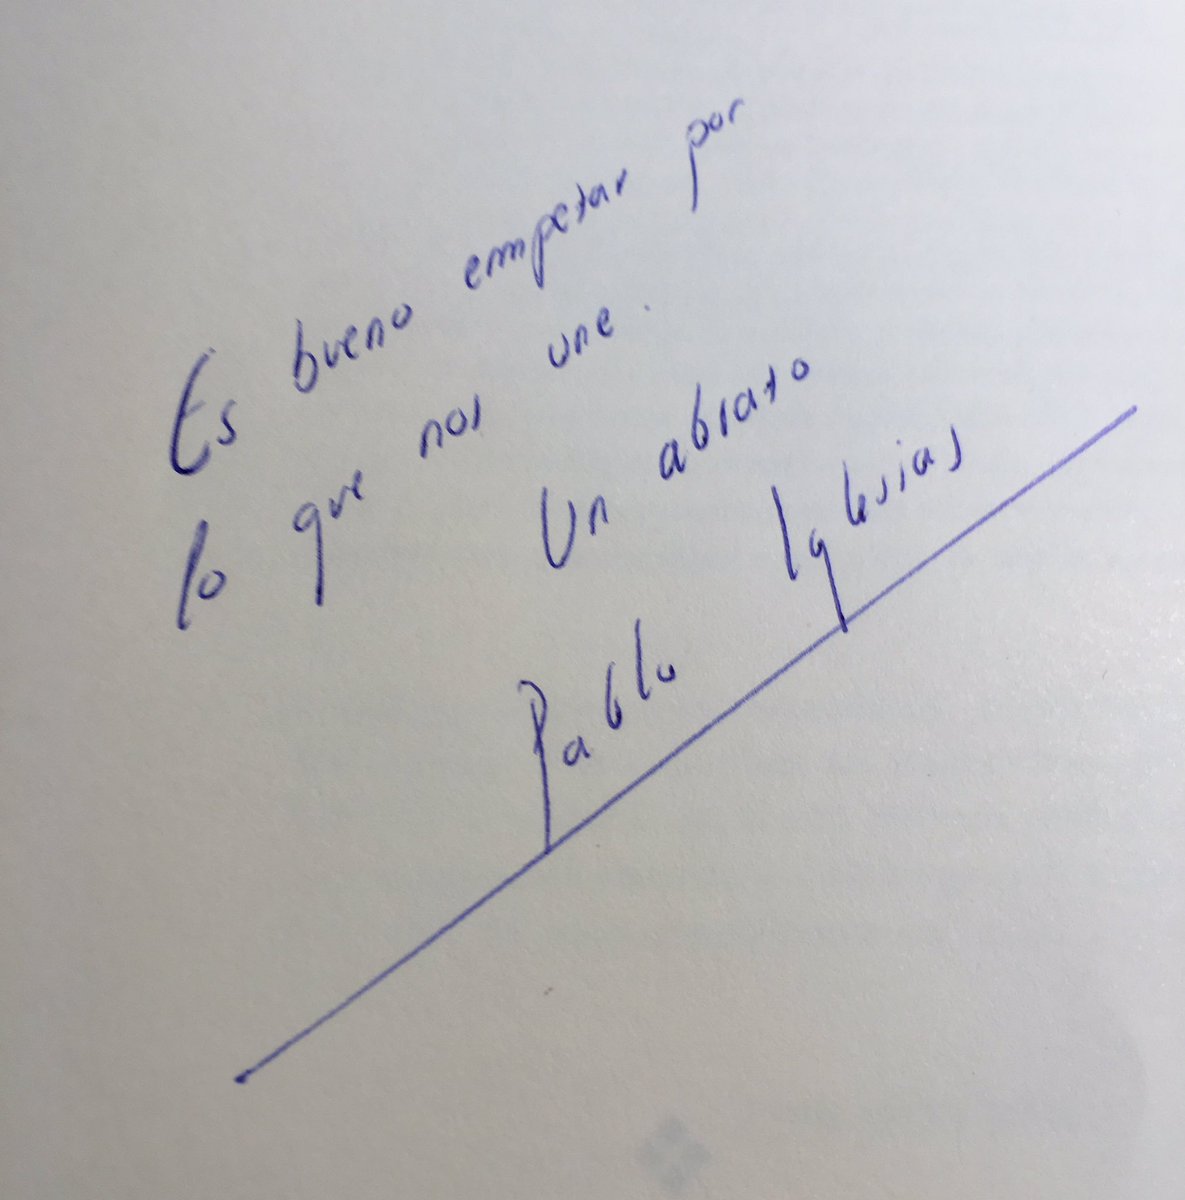 Es bueno empezar por
lo que nos une.
Un abrazo
Pablo Iglesias